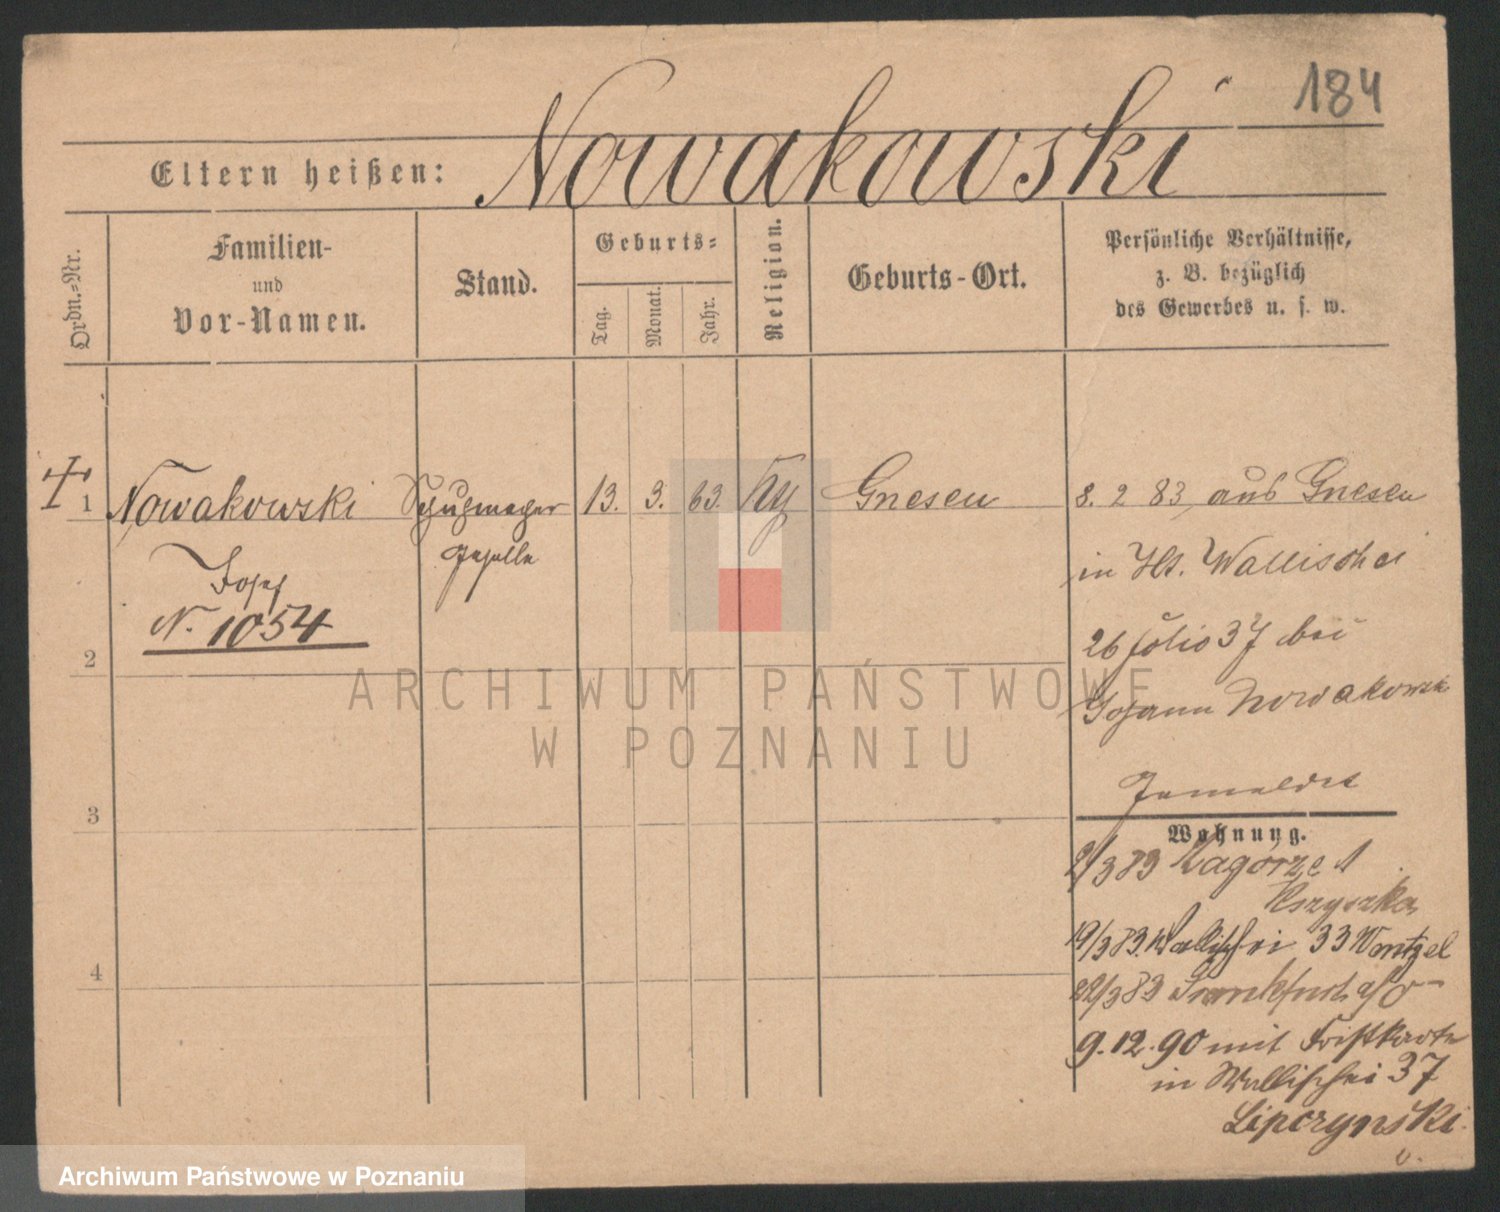 184
Eltern heißen: Nowakowski
Ordn.-Nr.
Familien-
und
Vor-Namen.
Stand.
Geburts-
Tag.
Monat.
Jahr.
Religion.
Geburts-Ort.
Persönliche Verhältnisse,
z. B. bezüglich
des Gewerbes u. s. w.
1 Nowakowski Schuhmacher 13. 3. 63. Gnesen 8. 2 83, aus Gnesen
geselle
in Wallischei
Josef
N. 1054
26 folio 37 bei
2
Johann Nowakowski
gemeldet
3
Wohnung.
2/3 83 Zagórze 1
Krzyszka
19/3 83. Wallischei 33 Wentzel
22/3 83 Frankfurt a/O
4
9. 12. 90 mit Fristkarte
in Wallischei 37
Lipczynski
ARCHIWUM PAŃSTWOWE
W POZNANIU
Archiwum Państwowe w Poznaniu